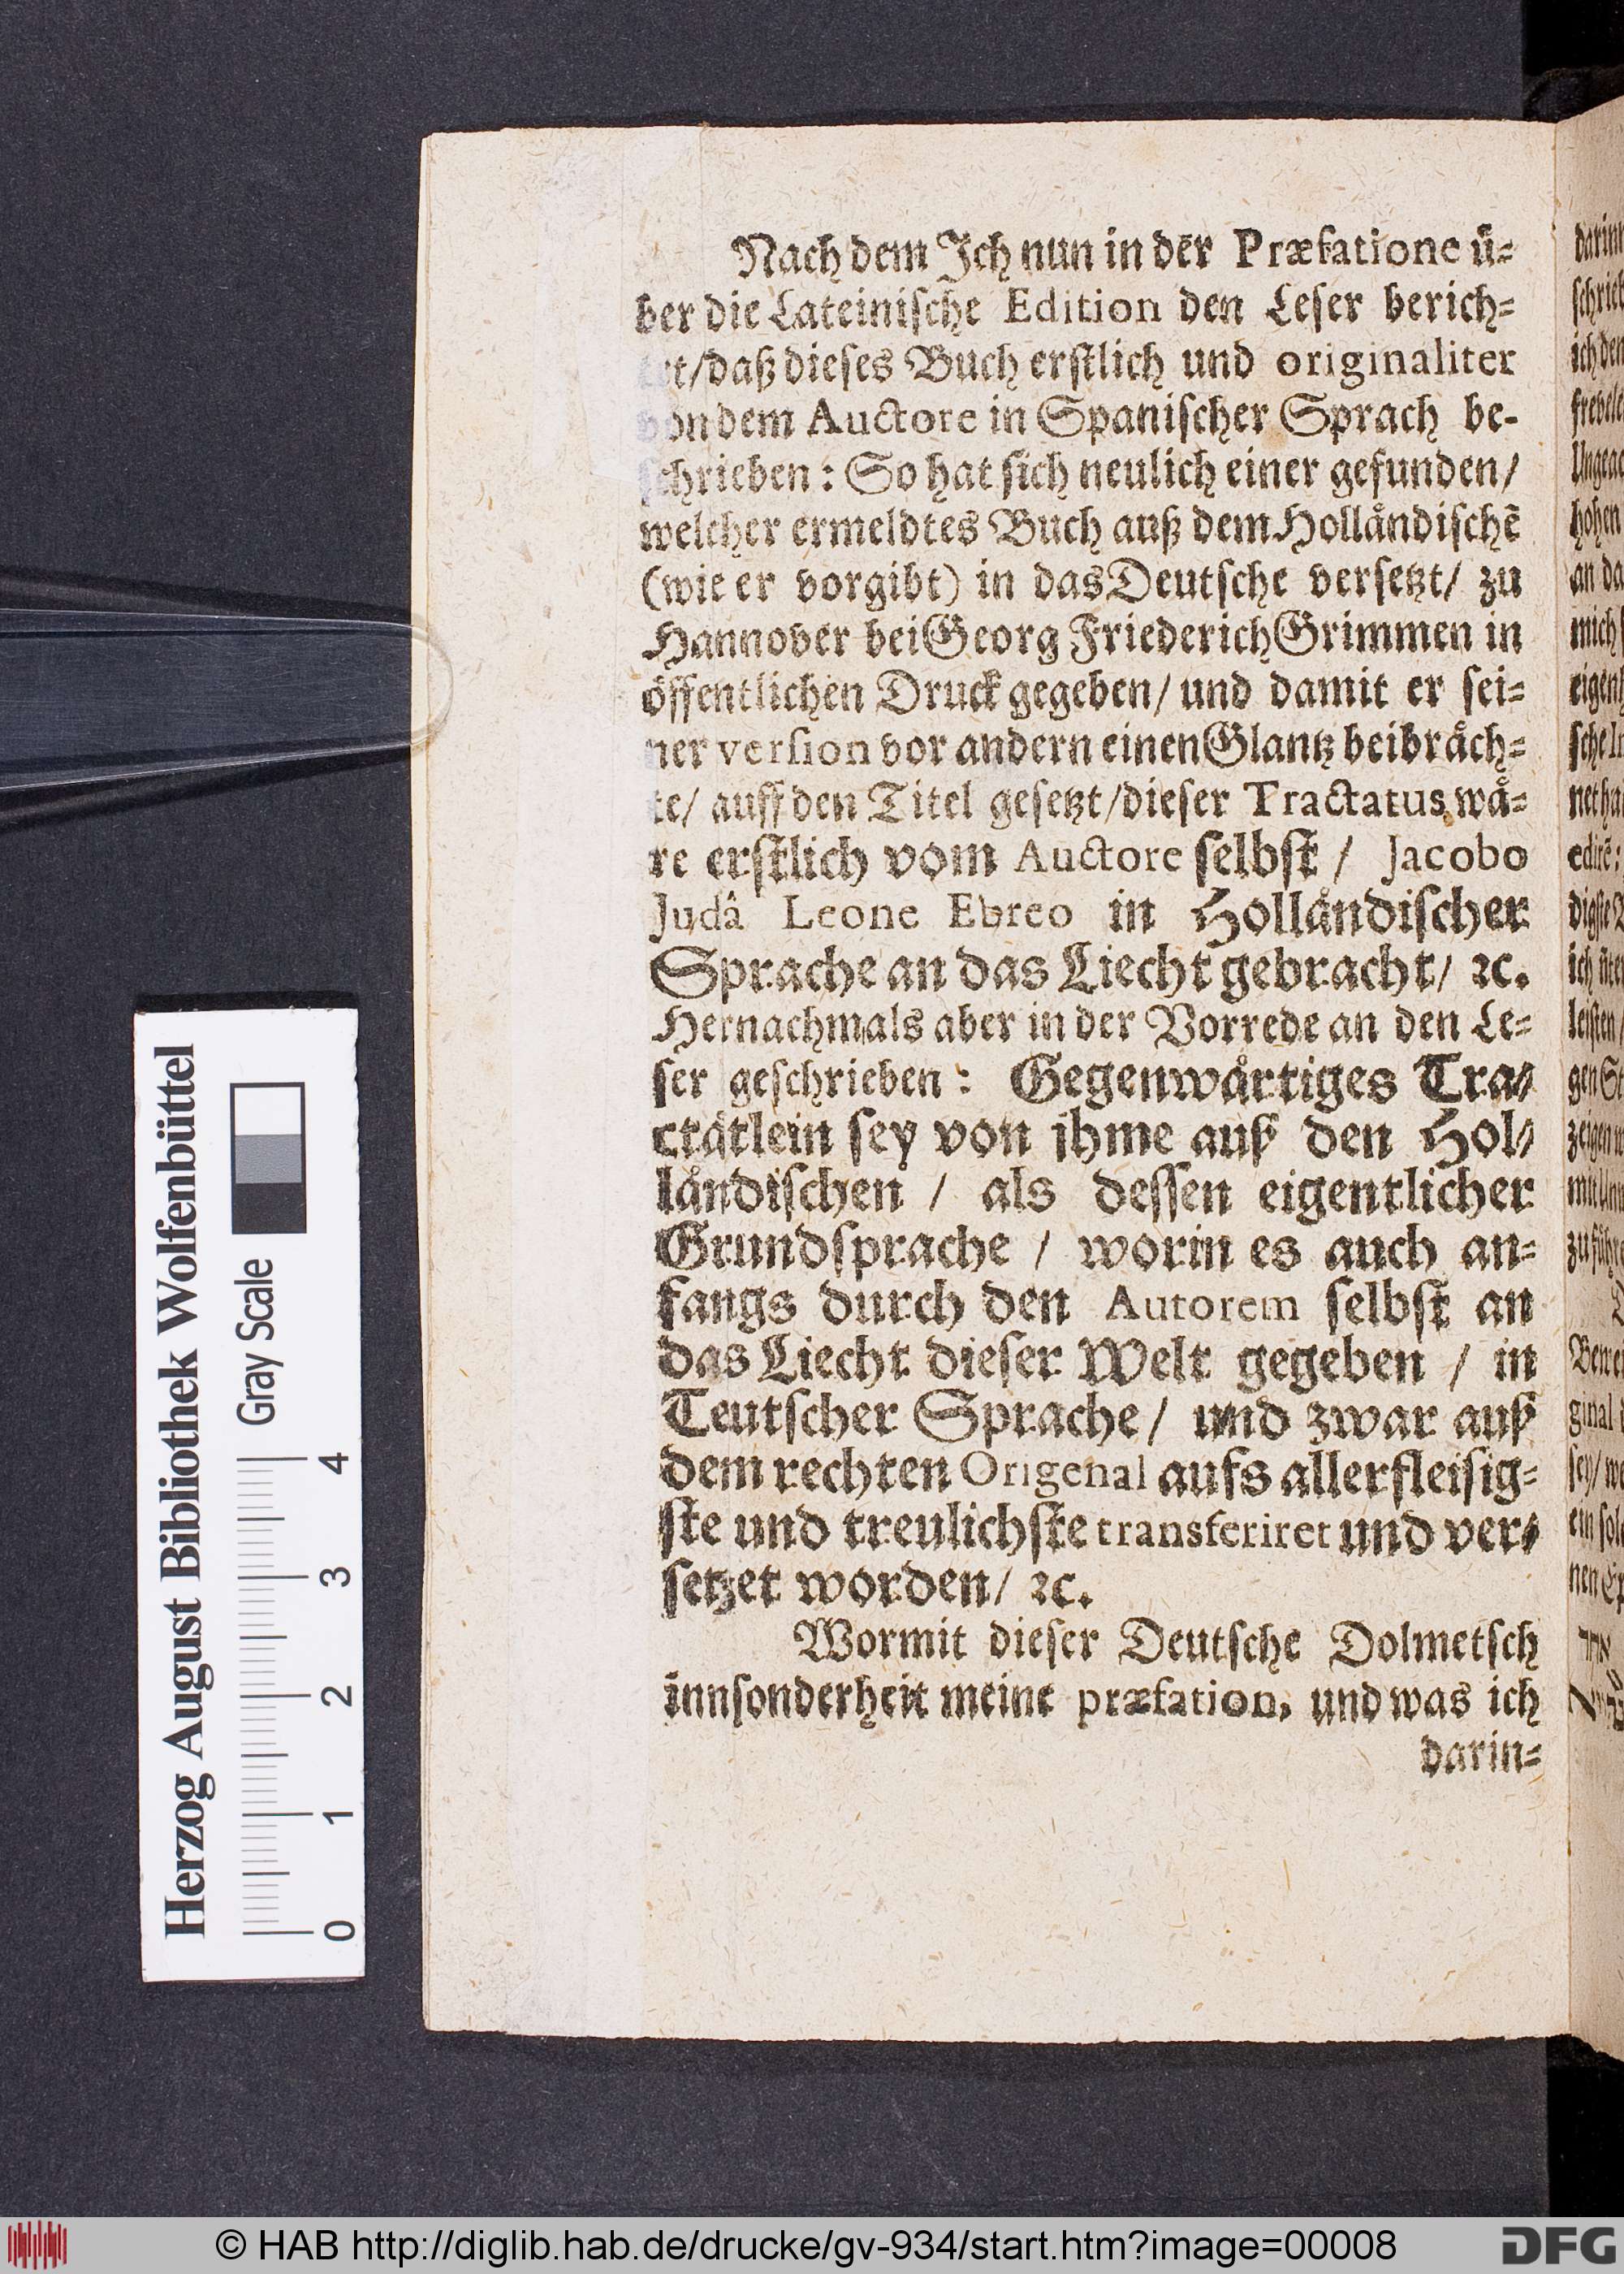 Nach dem Ich nun in der Præfatione ü-
ber die Lateinische Edition den Leser berich-
tet/daß dieses Buch erstlich und originaliter
von dem Auctore in Spanischer Sprach be-
schrieben: So hat sich neulich einer gefunden/
welcher ermeldtes Buch auß dem Holländischẽ
(wie er vorgibt) in das Deutsche versetzt/ zu
Hannover bei Georg Friederich Grimmen in
öffentlichen Druck gegeben/ und damit er sei-
ner version vor andern einen Glantz beibräch-
te/ auff den Titel gesetzt/dieser Tractatus wä-
re erstlich vom Auctore selbst / Jacobo
Judâ Leone Ebreo in Holländischer
Sprache an das Liecht gebracht/ ꝛc.
Hernachmals aber in der Vorrede an den Le-
ser geschrieben: Gegenwärtiges Tra-
ctätlein sey von ihme auß den Hol-
ländischen / als dessen eigentlicher
Grundsprache / worin es auch an-
fangs durch den Autorem selbst an
das Liecht dieser Welt gegeben / in
Teutscher Sprache/ und zwar auß
dem rechten Origenal aufs allerfleisig-
ste und treulichste transferiret und ver-
setzet worden/ ꝛc.
Wormit dieser Deutsche Dolmetsch
innsonderheit meine præfation, und was ich
darin-
Herzog August Bibliothek Wolfenbüttel
Gray Scale
0 1 2 3 4
© HAB http://diglib.hab.de/drucke/gv-934/start.htm?image=00008
DFG